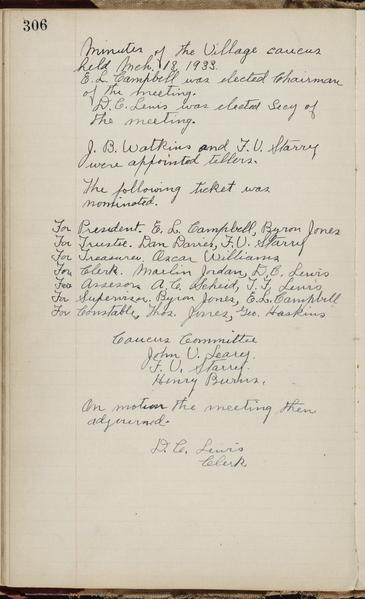 306
Minutes of the Village caucus
held Mch. 18, 1933.
E. L. Campbell was elected Chairman
of the meeting.
D. C. Lewis was elected Secy of
the meeting.
J. B. Watkins and F. V. Starry
were appointed tellers.
The following ticket was
nominated.
For President. E. L. Campbell, Byron Jones
For Trustee. Dan Davies, F. V. Starry
For Treasurer. Oscar Williams
For Clerk. Marlin Jordan, D. C. Lewis
For Assessor A. C. Scheid, T. J. Lewis
For Supervisor. Byron Jones, E. L. Campbell
For Constable, Thos. Jones, Geo. Haskins
Caucus Committee
John V. Leary.
F. V. Starry.
Henry Burns.
On motion the meeting then
adjourned.
D. C. Lewis
Clerk